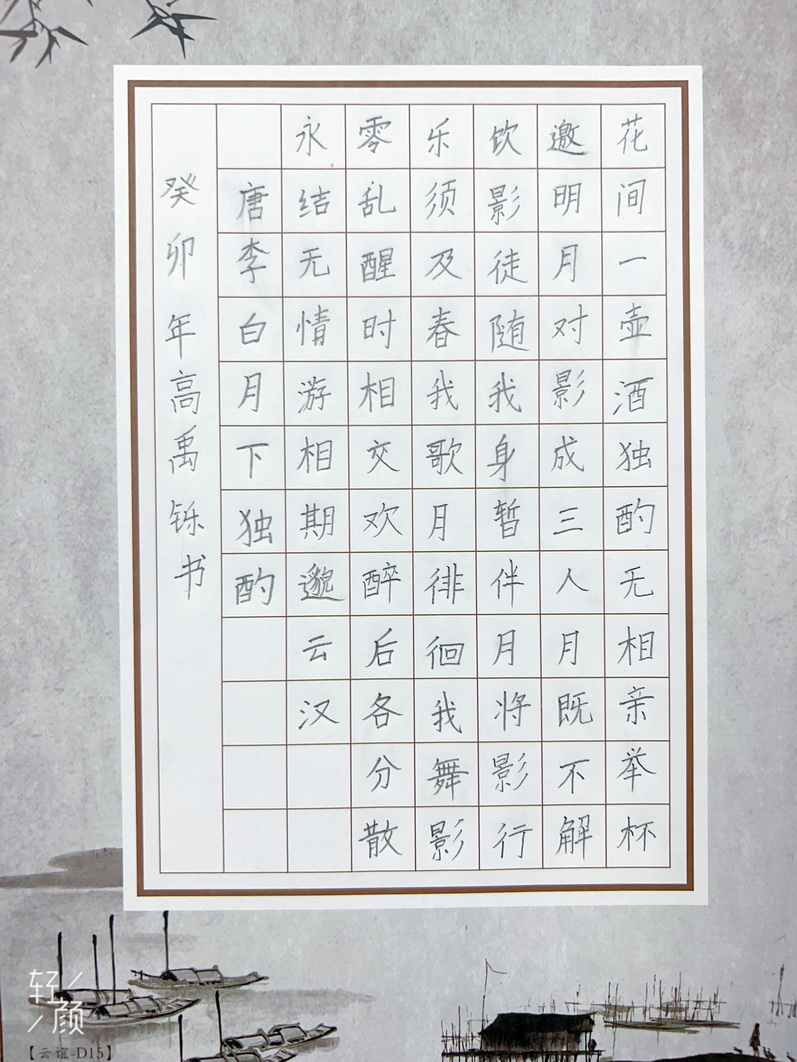 花间一壶酒独酌无相亲举杯
邀明月对影成三人月既不解
饮影徒随我身暂伴月将影行
乐须及春我歌月徘徊我舞影
零乱醒时相交欢醉后各分散
永结无情游相期邈云汉
唐李白月下独酌
癸卯年高禹铄书
轻颜
【云谊-D15】